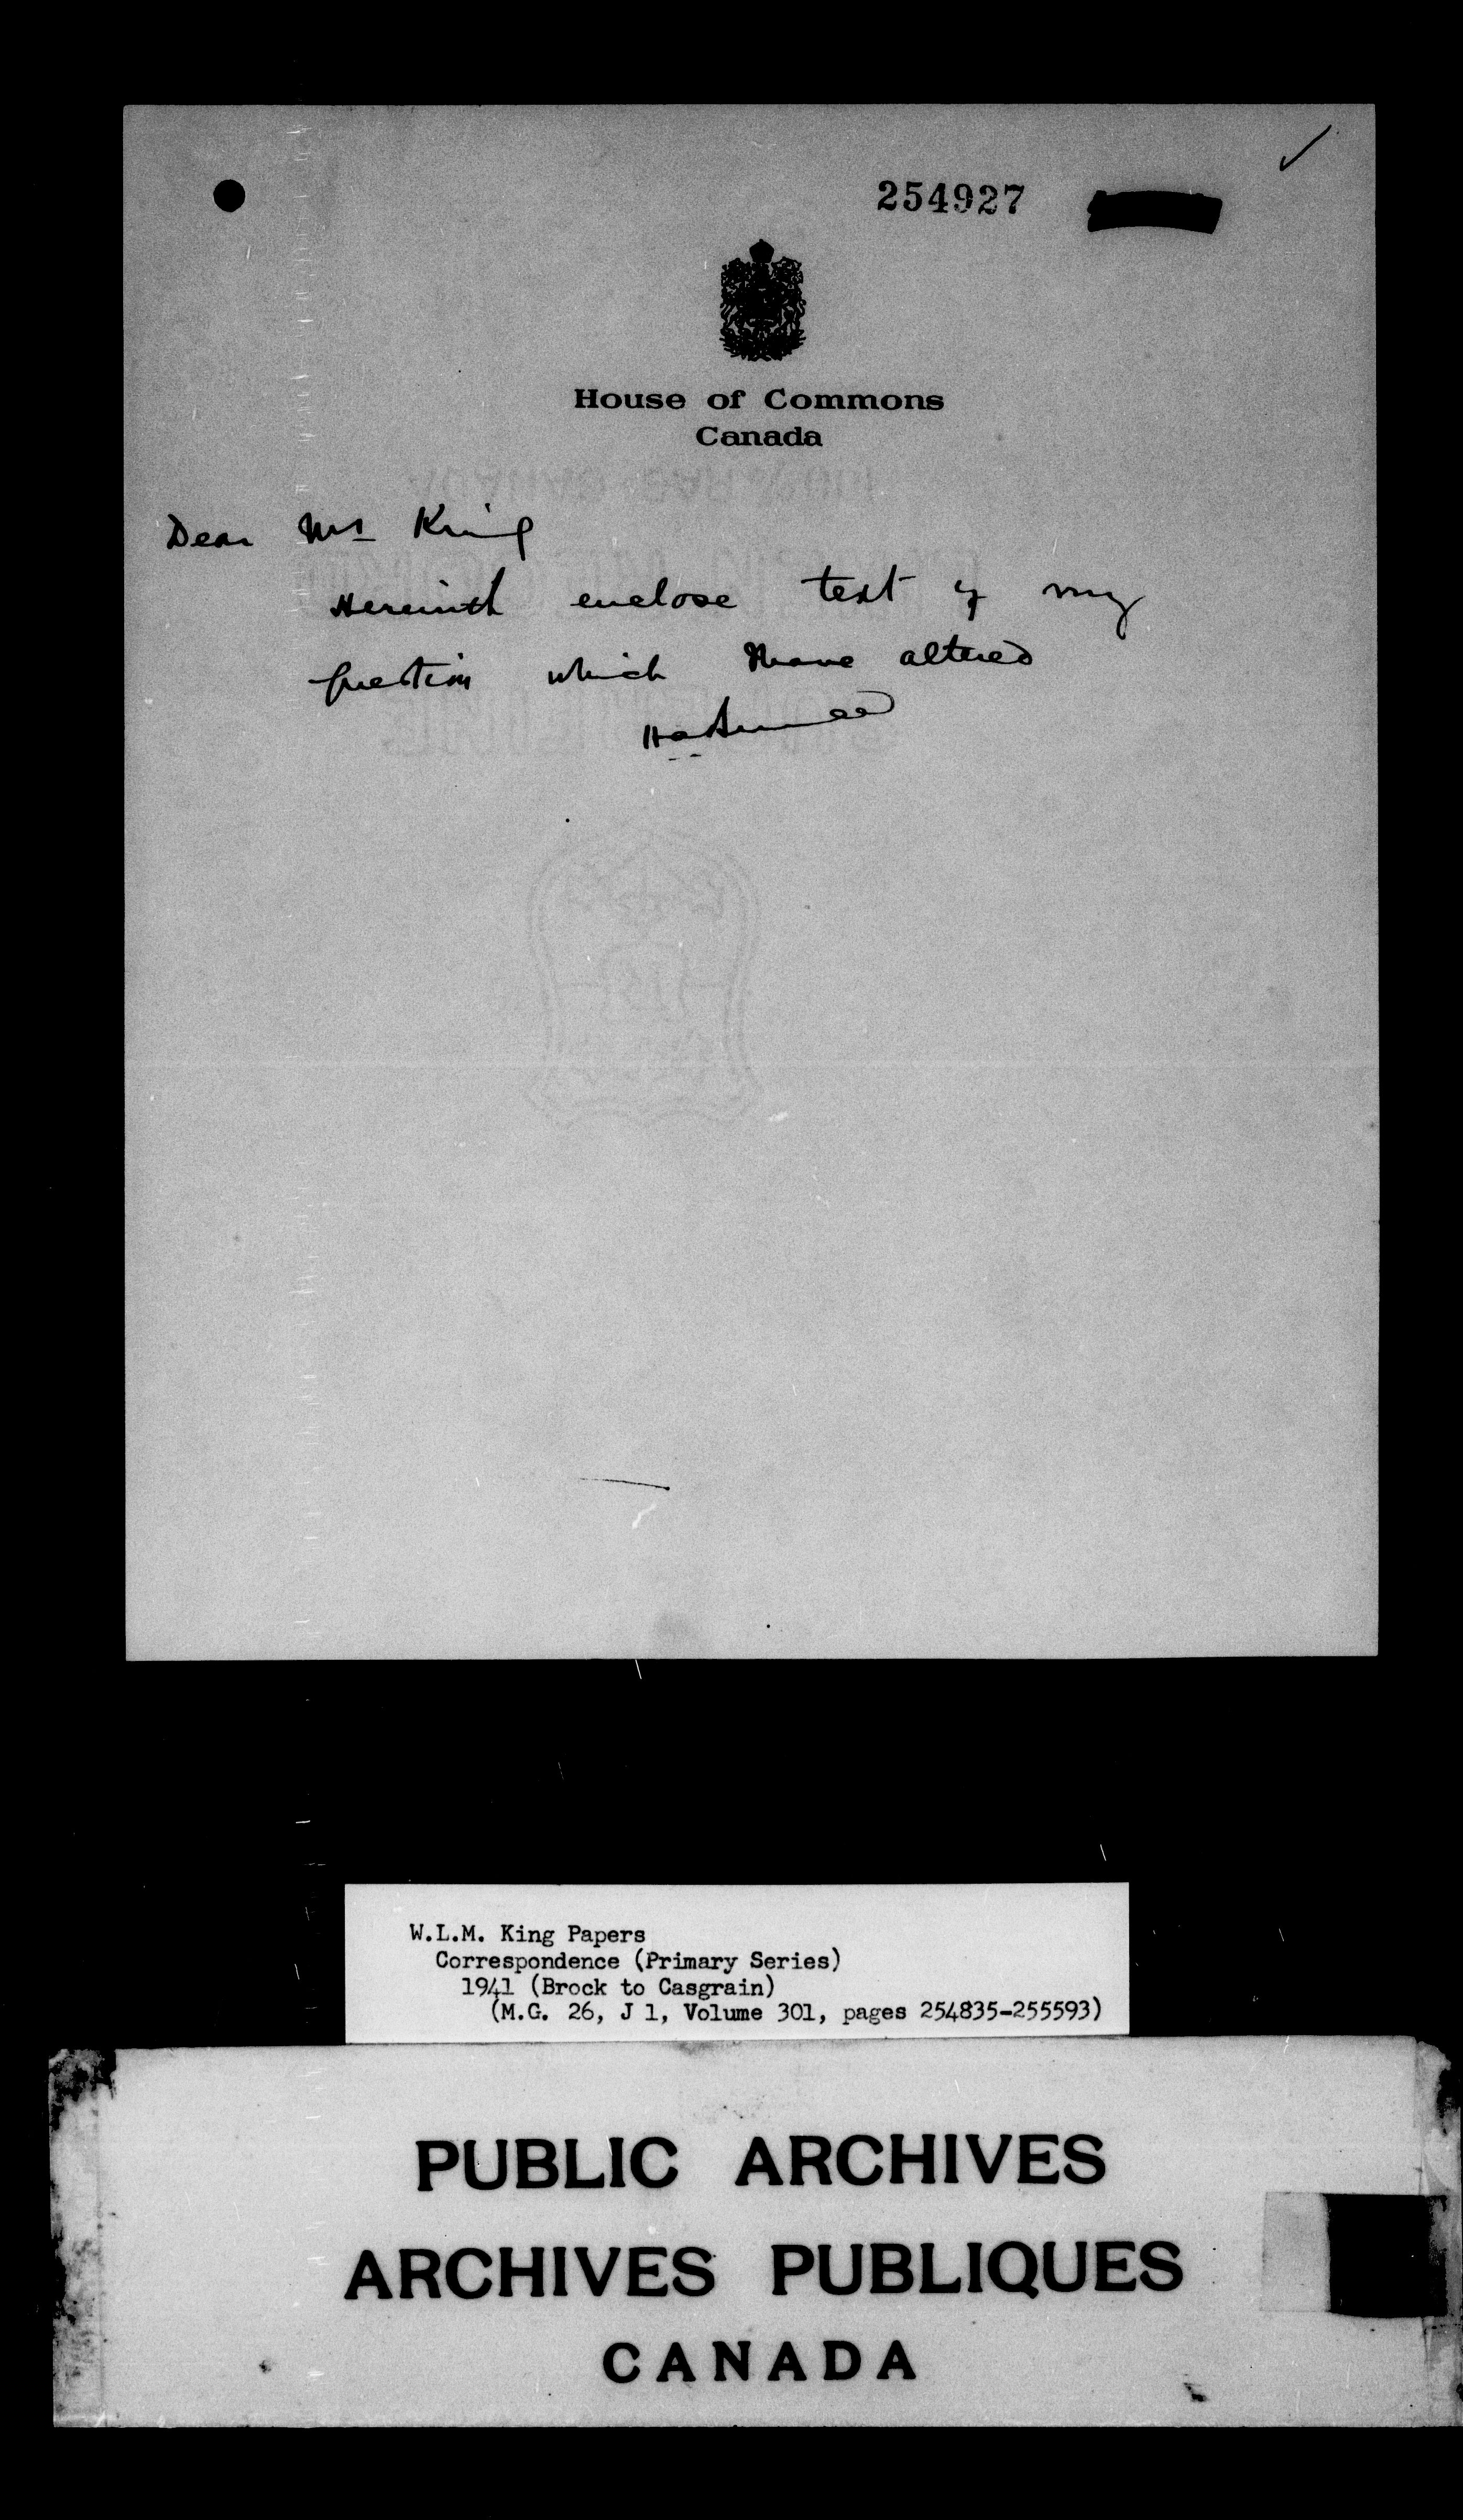 254927
House of Commons
Canada
Dear Mr King
Herewith enclose text of my
question which I have altered
W.L.M. King Papers
Correspondence (Primary Series)
1941 (Brock to Casgrain)
(M.G. 26, J 1, Volume 301, pages 254835-255593)
PUBLIC ARCHIVES
ARCHIVES PUBLIQUES
CANADA